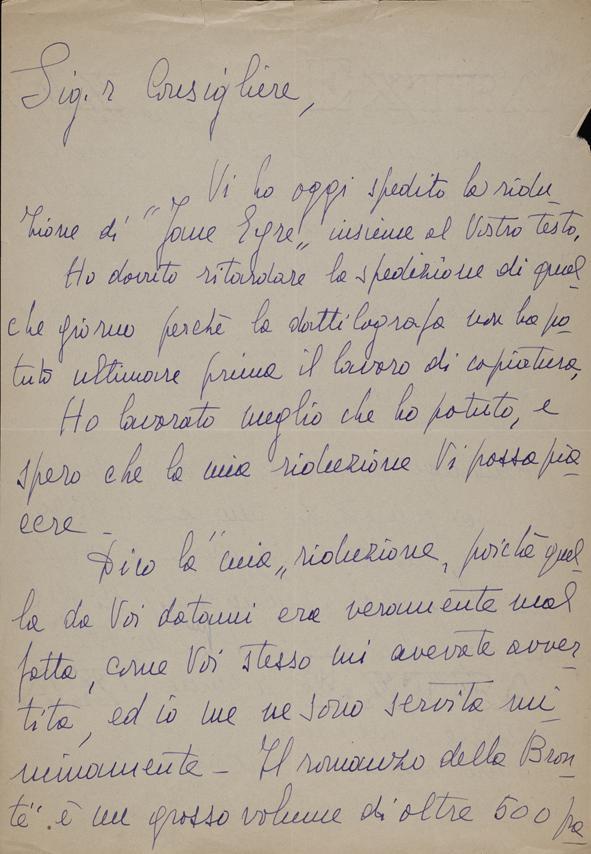 Sig.r Consigliere,
Vi ho oggi spedito la ridu-
zione di "Jane Eyre" insieme al Vostro testo.
Ho dovuto ritardare la spedizione di qual-
che giorno perchè la dattilografa non ha po-
tuto ultimare prima il lavoro di copiatura.
Ho lavorato meglio che ho potuto, e
spero che la mia riduzione Vi possa pia-
cere -
Dico la "mia" riduzione, poichè quel-
la da Voi datami era veramente mal
fatta, come Voi stesso mi avevate avver-
tita, ed io me ne sono servita mi-
nimamente - Il romanzo della Bron-
të è un grosso volume di oltre 500 pa